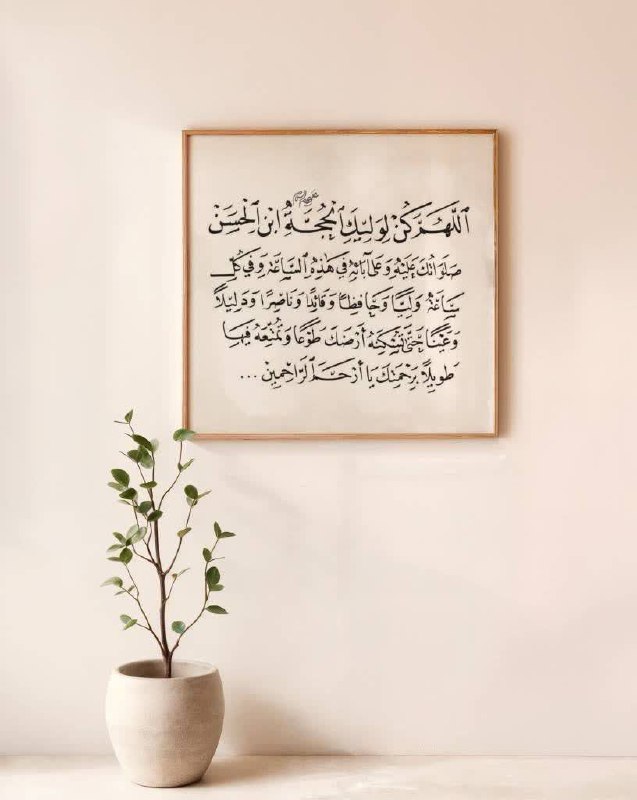 ٱللَّهُمَّ كُنْ لِوَلِيِّكَ ٱلْحُجَّةِ ابْنِ ٱلْحَسَنْ
صَلَوَاتُكَ عَلَيْهِ وَعَلَى آبَائِهِ فِي هَذِهِ السَّاعَةِ وَفِي كُلِّ
سَاعَةٍ وَلِيًّا وَحَافِظًا وَقَائِدًا وَنَاصِرًا وَدَلِيلًا
وَعَيْنًا حَتَّى تُسْكِنَهُ أَرْضَكَ طَوْعًا وَتُمَتِّعَهُ فِيهَا
طَوِيلًا بِرَحْمَتِكَ يَا أَرْحَمَ ٱلرَّاحِمِينَ ...